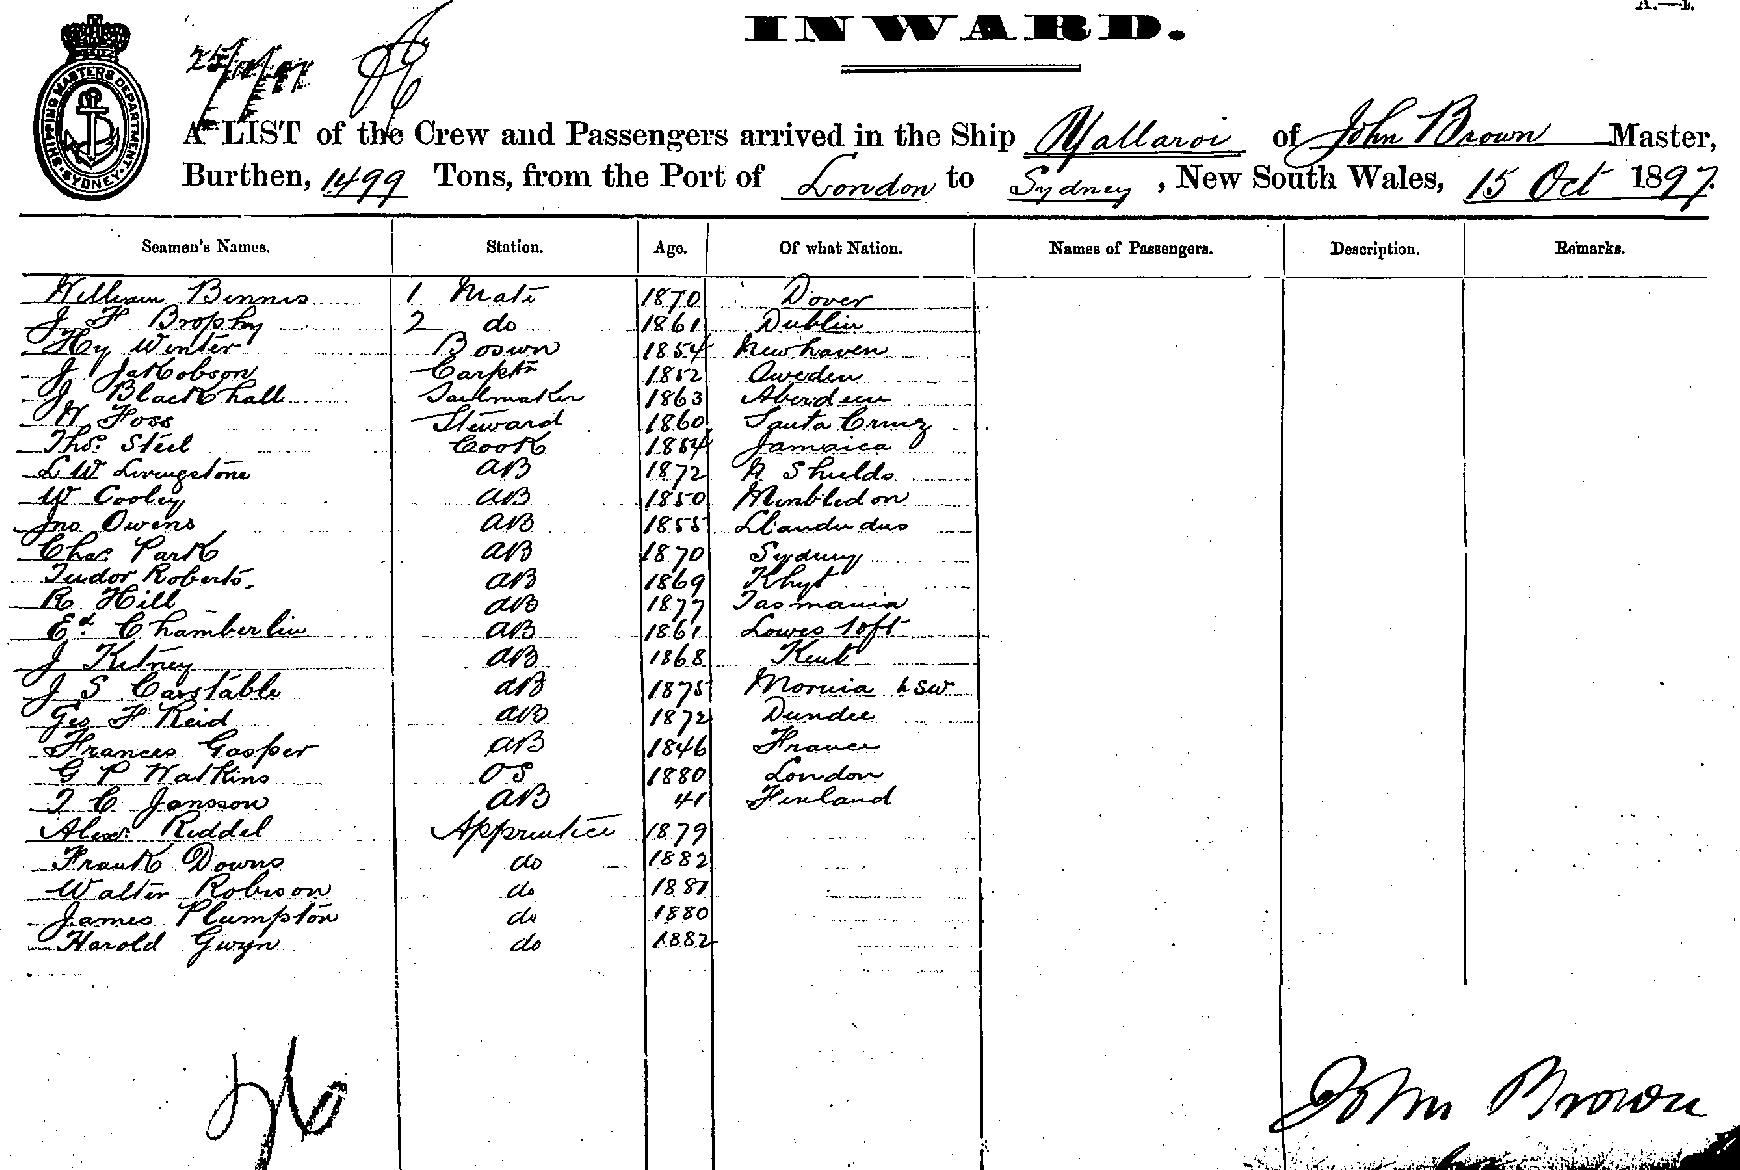 A.—1.
INWARD.
SHIPPING MASTERS DEPARTMENT SYDNEY
A LIST of the Crew and Passengers arrived in the Ship Mallaroi of John Brown Master,
Burthen, 1499 Tons, from the Port of London to Sydney, New South Wales, 15 Oct 1897.
Seamen's Names. Station. Age. Of what Nation. Names of Passengers. Description. Remarks.
William Binnis 1 Mate 1870 Dover
J F Brophy 2 do 1861 Dublin
Hy Winter Boswn 1854 Newhaven
J Jakobson Carptr 1852 Sweden
J Blackhall Sailmaker 1863 Aberdeen
W Foss Steward 1860 Santa Cruz
Thos. Steel Cook 1854 Jamaica
L W Livingstone AB 1872 N Shields
W Cooley AB 1850 Wimbledon
Jno Owens AB 1855 Llandudus
Chas. Park AB 1870 Sydney
Tudor Roberts. AB 1869 Rhyl
R Hill AB 1877 Tasmania
Ed. Chamberlin AB 1861 Lowestoft
J Kitney AB 1868 Kent
J S Constable AB 1875 Moruia NSW
Geo F Reid AB 1872 Dundee
Frances Gasper AB 1846 France
G P Watkins OS 1880 London
J C Jansson AB 41 Finland
Alexr. Riddel Apprentice 1879
Frank Downs do 1882
Walter Robison do 1881
James Plumpton do 1880
Harold Gwyn do 1882
26
John Brown